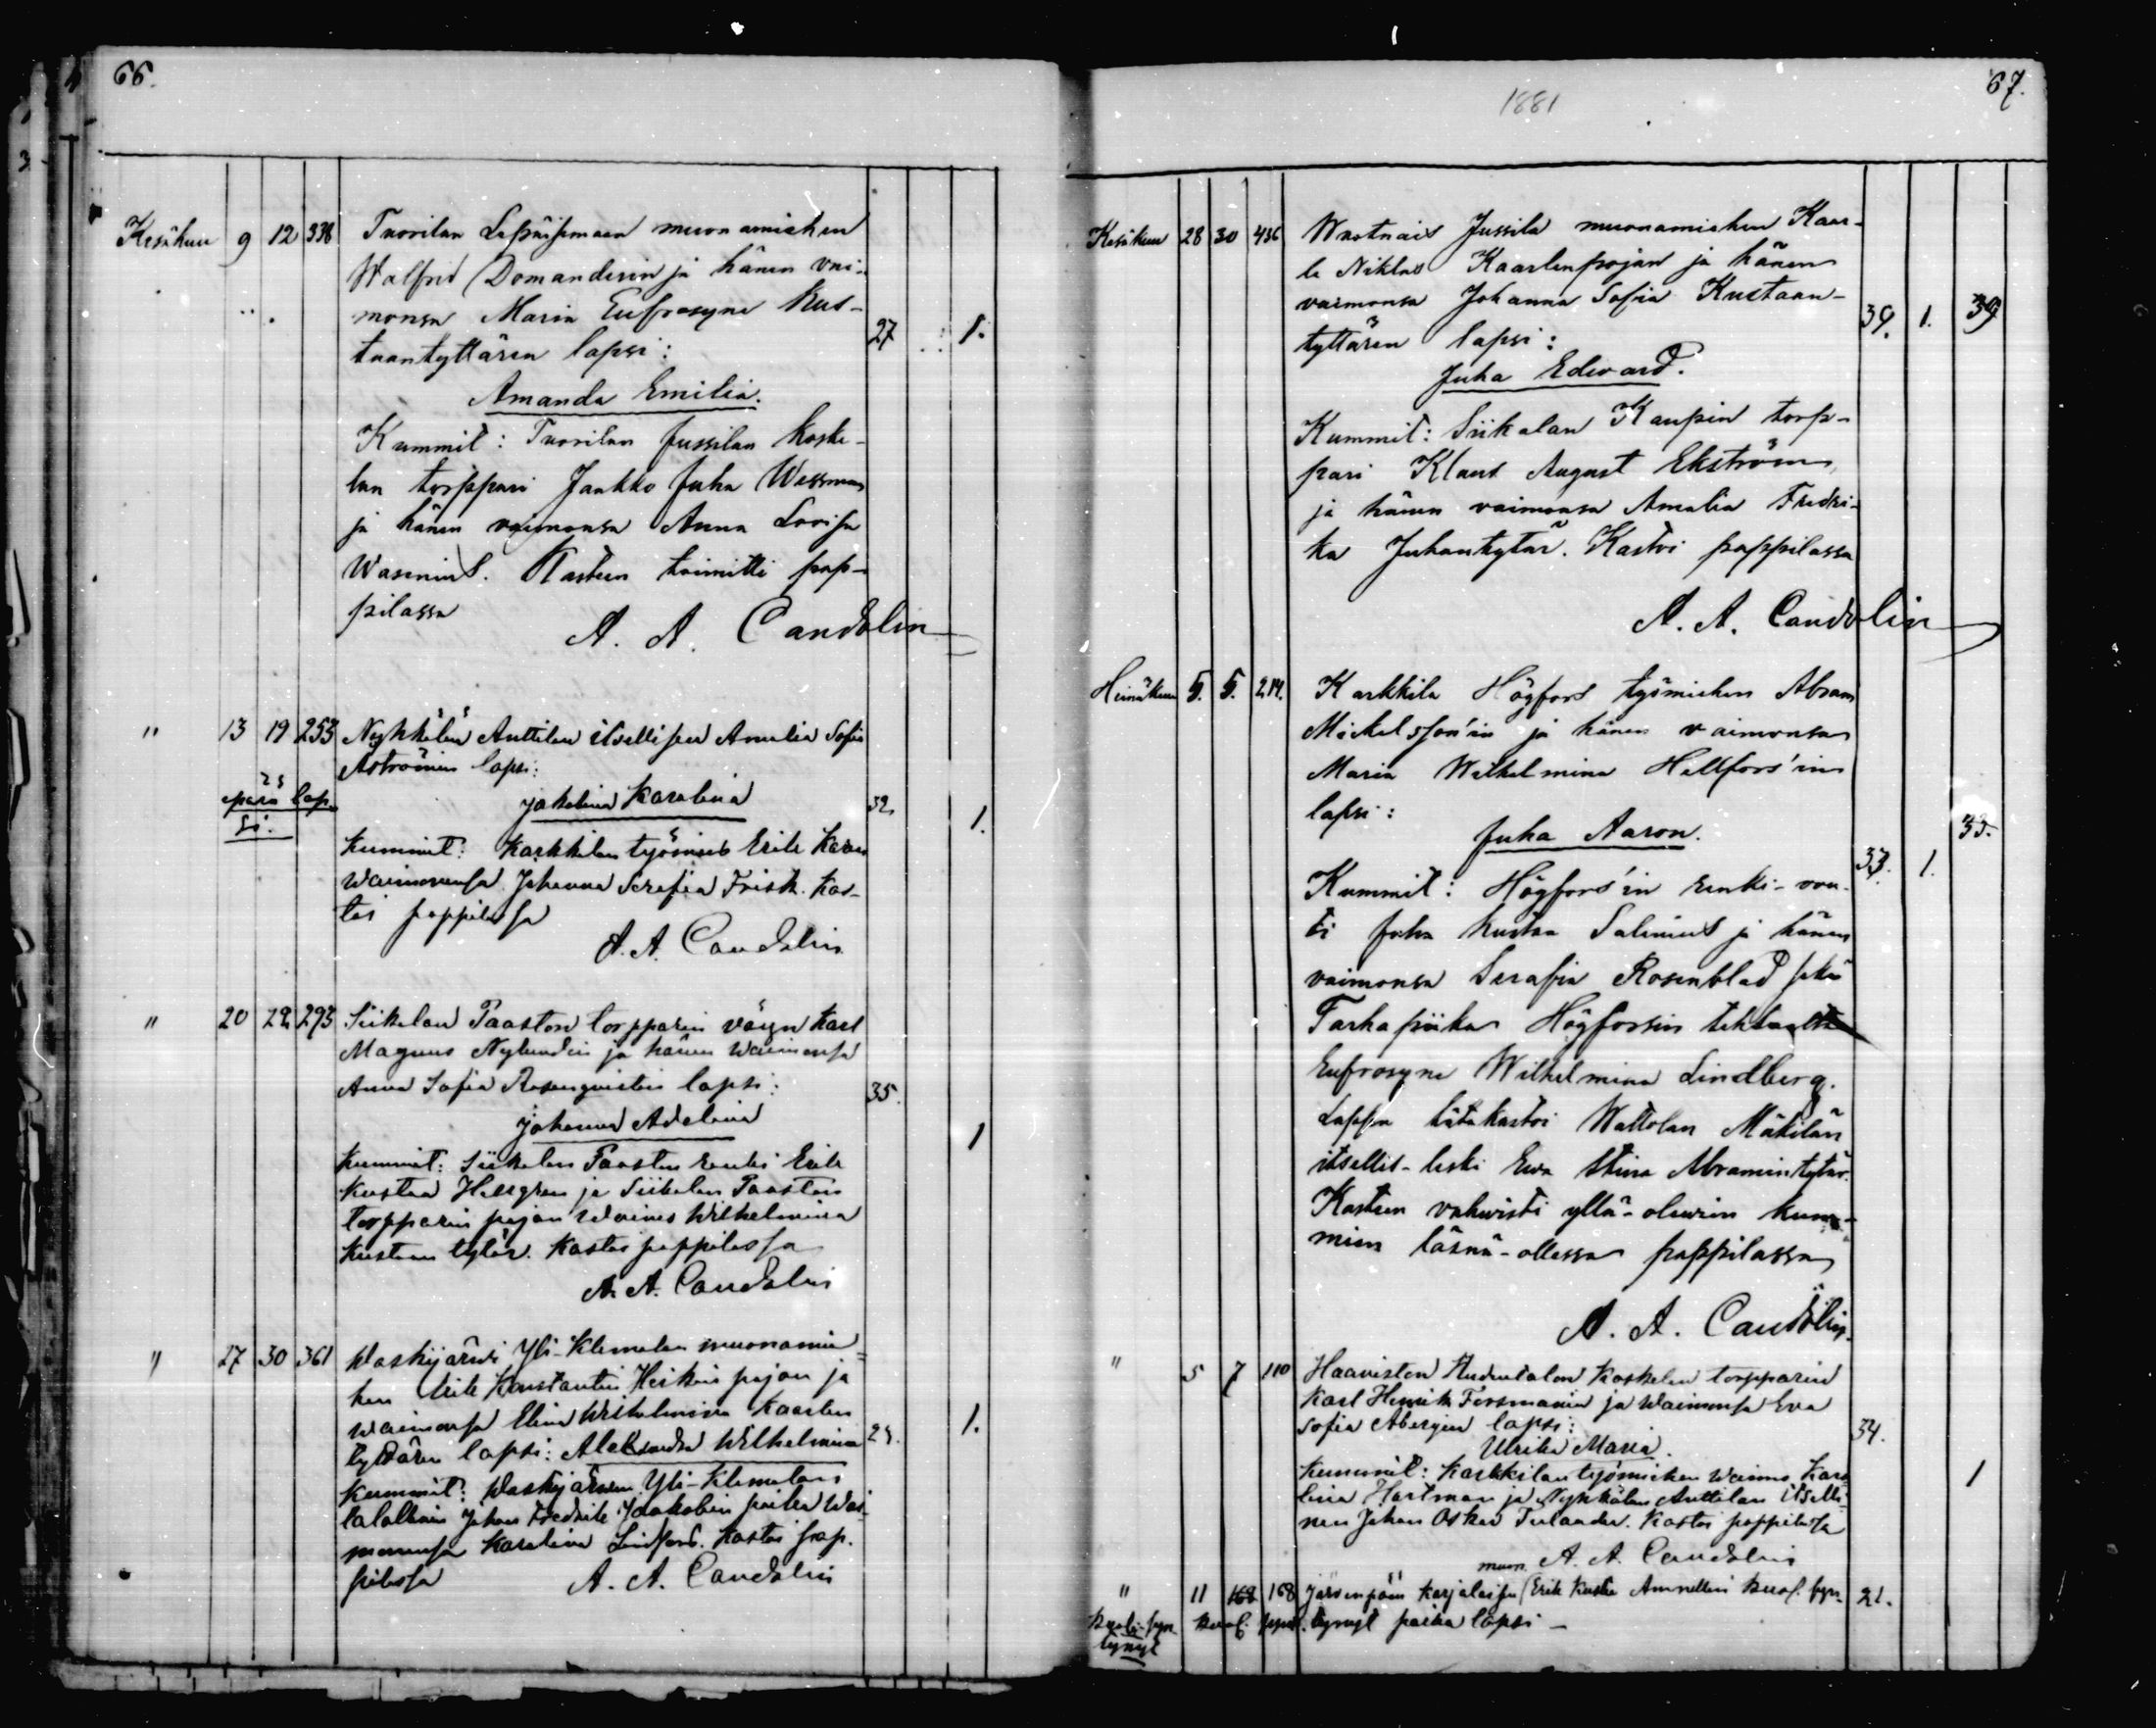 66.
Kesäkuu 9 12 338 Tuorilan Lepäismaan muonamiehen
Walfrid Domanderin ja hänen vai-
monsa Maria Eufrosyne Kus-
taantyttären lapsi: 27 1.
Amanda Emilia.
Kummit: Tuorilan Jussilan Koske-
lan torppari Jaakko Juha Wessman
ja hänen vaimonsa Anna Lovisa
Wasenius. Kasteen toimitti pap-
pilassa
A. A. Candolin
" 13 19 253 Nyhkälän Anttilan itsellisen Amalia Sofia
Åströmin lapsi:
epärä lap-
si.
Jakolina Karolina 32 1.
Kummit: Karkkilan työmies Erik
Waimonsa Johanna Serafia Frisk. Kas-
toi pappilassa
A. A. Candolin
" 20 22 293 Siikalan Paaston torpparin väyn Karl
Magnus Nylundin ja hänen Waimonsa
Anna Sofia Rosenqvistin lapsi: 35.
Johanna Adelina 1
Kummit: Siikalan Paaston renki Erik
Kustaa Hellgren ja Siikalan Paaston
torpparin pojan Waimo Wilhelmina
Kustaan tytär. Kastoi pappilassa
A. A. Candolin
" 27 30 361 Waskijärwi Yli-Klemolan muonamie-
hen Erik Konstantin Heikin pojan ja
Waimonsa Elina Wilhelmina Kaarlen
tyttären lapsi: Aleksandra Wilhelmina 1.
Kummit: Waskijärwen Yli-Klemolan
talollinen Johan Fredrik Jaakobin poika Wai-
monensa Karolina Lindfors. Kastoi pap-
pilassa A. A. Candolin
1881
67.
Kesäkuu 28 30 436 Wuotnais Jussila muonamiehen Kaar-
le Niklas Kaarlenpojan ja hänen
vaimonsa Johanna Sofia Kustaan-
tyttären lapsi: 39. 1. 39
Juha Edvard.
Kummit: Siikalan Kaupin torp-
pari Klaus August Ekström
ja hänen vaimonsa Amalia Fredri-
ka Juhantytär. Kastoi pappilassa
A. A. Candolin
Heinäkuu 5. 5. 214. Karkkila Högfors työmiehen Abram
Mickelsson'in ja hänen vaimonsa
Maria Wilhelmina Hellfors'in
lapsi:
Juha Aaron. 33. 1. 33.
Kummit: Högfors'in renki-vou-
ti Juha Kustaa Salenius ja hänen
vaimonsa Serafia Rosenblad sekä
Tarhapiika Högforsin tehtaalta
Eufrosyne Wilhelmina Lindberg.
Lapsen hätäkastoi Wattolan Mäkilän
itsellis-leski Ewa Stina Abramintytär.
Kasteen vahwisti yllä-olewien kum-
mien läsnä-ollessa pappilassa
A. A. Candolin.
" 5 7 110 Haaviston Uudentalon Koskelan torpparin
Karl Henrik Forsmanin ja Waimonsa Eva
Sofia Åbergin lapsi: 34.
Ulrika Maria.
Kummit: Karkkilan työmiehen Waimo Karo-
lina Hartman ja Nyhkälän Anttilan itselli-
nen Johan Oskar Tulander. Kastoi pappilassa 1
A. A. Candolin
muon.
" 11 168 168 Järvenpään Karjalaisen Erik Kustaa Amnellin kuol. syn- 21.
Kuol. syn- tynyt poika lapsi —
tynyt